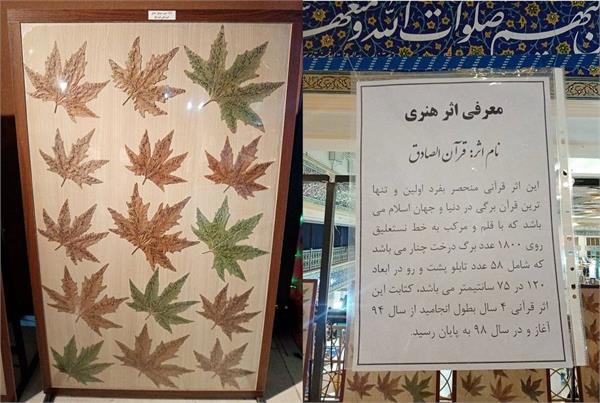 صلوات الله و
معرفی اثر هنری
نام اثر: قرآن الصادق
این اثر قرآنی منحصر بفرد اولین و تنها
ترین قرآن برگی در دنیا و جهان اسلام می
باشد که با قلم و مرکب به خط نستعلیق
روی ۱۸۰۰ عدد برگ درخت چنار می باشد
که شامل ۵۸ عدد تابلو پشت و رو در ابعاد
۱۲۰ در ۷۵ سانتیمتر می باشد، کتابت این
اثر قرآنی ۴ سال بطول انجامید از سال ۹۴
آغاز و در سال ۹۸ به پایان رسید.